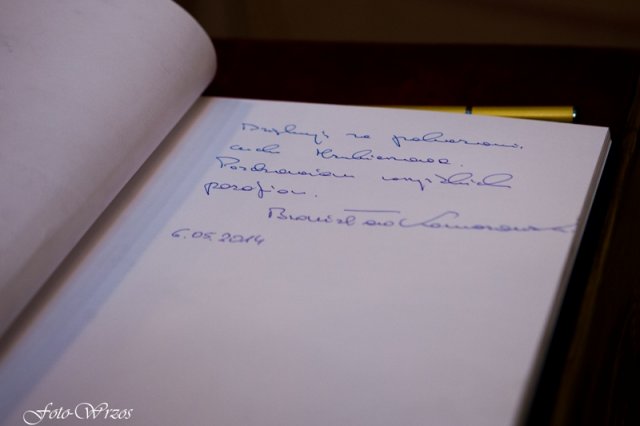 Dziękuję za pokazanie
cudu Hrubieszowa.
Pozdrawiam wszystkich
parafian.
Bronisław Komorowski
6.05.2014
Foto-Wrzos